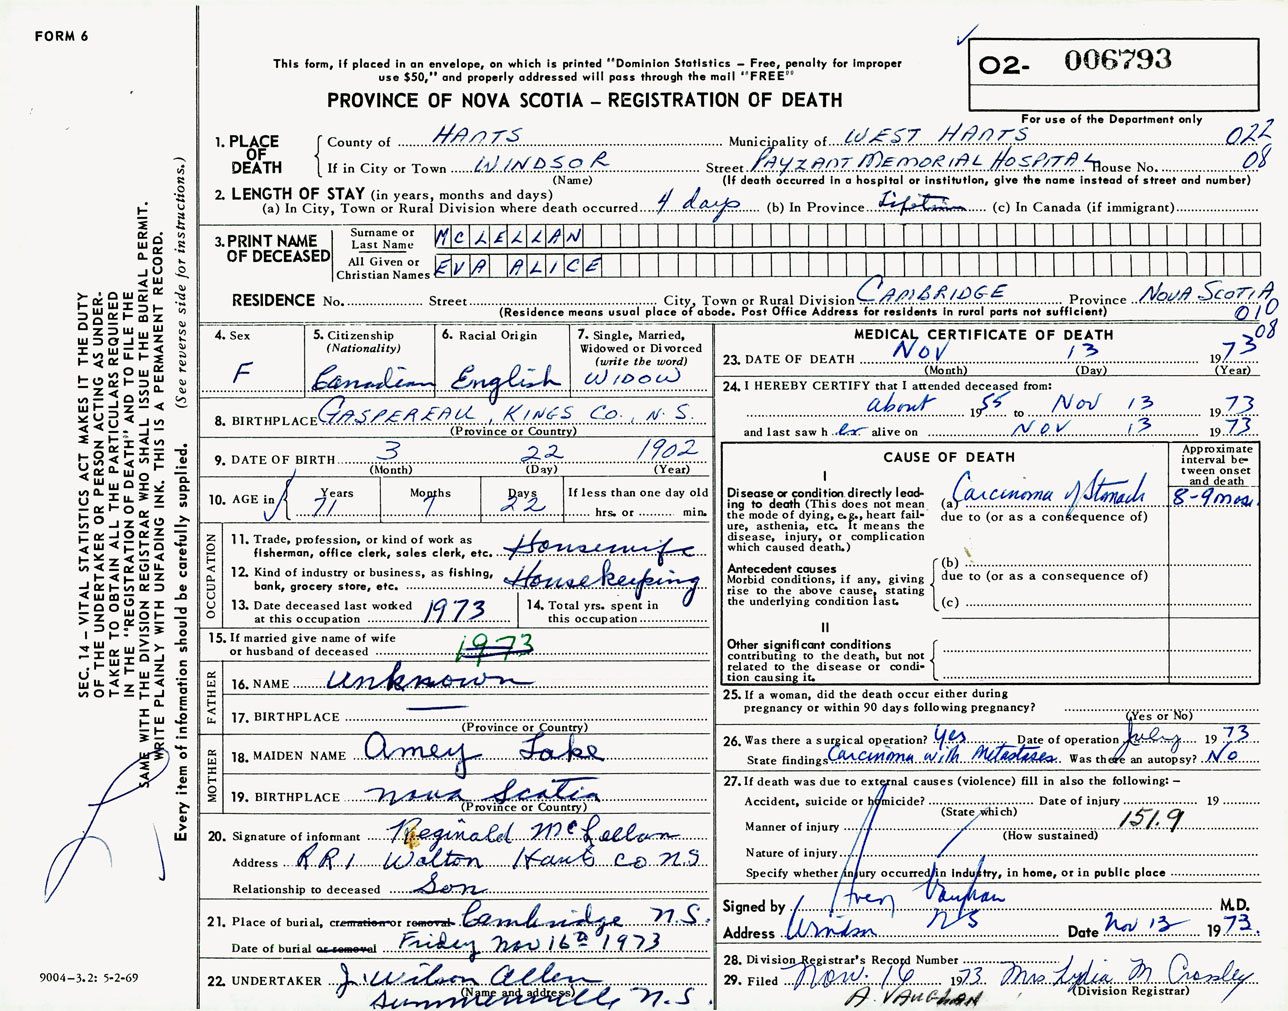 FORM 6
This form, if placed in an envelope, on which is printed "Dominion Statistics – Free, penalty for improper
use $50," and properly addressed will pass through the mail "FREE"
O2- 006793
PROVINCE OF NOVA SCOTIA – REGISTRATION OF DEATH
For use of the Department only
1. PLACE OF DEATH
County of HANTS Municipality of WEST HANTS 022
If in City or Town WINDSOR Street PAYZANT MEMORIAL HOSPITAL House No. 08
(Name) (If death occurred in a hospital or institution, give the name instead of street and number)
2. LENGTH OF STAY (in years, months and days)
(a) In City, Town or Rural Division where death occurred 4 days (b) In Province Lifetime (c) In Canada (if immigrant)
3. PRINT NAME OF DECEASED
Surname or Last Name MCLELLAN
All Given or Christian Names EVA ALICE
RESIDENCE No. Street City, Town or Rural Division CAMBRIDGE Province NOVA SCOTIA
(Residence means usual place of abode. Post Office Address for residents in rural parts not sufficient) 010
08
4. Sex F
5. Citizenship (Nationality) Canadian
6. Racial Origin English
7. Single, Married, Widowed or Divorced (write the word) WIDOW
8. BIRTHPLACE GASPEREAU, KINGS CO., N.S.
(Province or Country)
9. DATE OF BIRTH 3 22 1902
(Month) (Day) (Year)
10. AGE in Years 71 Months 7 Days 22 If less than one day old hrs. or min.
OCCUPATION
11. Trade, profession, or kind of work as fisherman, office clerk, sales clerk, etc. Housewife
12. Kind of industry or business, as fishing, bank, grocery store, etc. Housekeeping
13. Date deceased last worked at this occupation 1973
14. Total yrs. spent in this occupation
15. If married give name of wife or husband of deceased 1973
FATHER
16. NAME Unknown
17. BIRTHPLACE
(Province or Country)
MOTHER
18. MAIDEN NAME Amey Lake
19. BIRTHPLACE Nova Scotia
(Province or Country)
20. Signature of informant Reginald McLellan
Address R R 1 Walton Hants Co N S
Relationship to deceased Son
21. Place of burial, cremation or removal Cambridge N.S.
Date of burial or removal Friday Nov 16th 1973
22. UNDERTAKER J. Wilson Allen
(Name and address)
Summerville N.S.
MEDICAL CERTIFICATE OF DEATH
23. DATE OF DEATH Nov 13 1973
(Month) (Day) (Year)
24. I HEREBY CERTIFY that I attended deceased from:
about 1955 to Nov 13 1973
and last saw her alive on NOV 13 1973
CAUSE OF DEATH
Approximate interval between onset and death
I
Disease or condition directly leading to death (This does not mean the mode of dying, e.g., heart failure, asthenia, etc. It means the disease, injury, or complication which caused death.)
(a) Carcinoma of Stomach 8-9 mos.
due to (or as a consequence of)
Antecedent causes
Morbid conditions, if any, giving rise to the above cause, stating the underlying condition last.
(b)
due to (or as a consequence of)
(c)
II
Other significant conditions
contributing to the death, but not related to the disease or condition causing it.
25. If a woman, did the death occur either during pregnancy or within 90 days following pregnancy?
(Yes or No)
26. Was there a surgical operation? Yes Date of operation July 1973
State findings Carcinoma with Metastases. Was there an autopsy? No
27. If death was due to external causes (violence) fill in also the following: –
Accident, suicide or homicide? Date of injury 19
(State which)
Manner of injury 151.9
(How sustained)
Nature of injury
Specify whether injury occurred in Industry, in home, or in public place
Signed by Vaughan M.D.
Address Windsor N S Date Nov 13 1973.
28. Division Registrar's Record Number
29. Filed Nov. 16 1973. Mrs Lydia M Crossley
(Division Registrar)
A. VAUGHAN
SEC. 14 – VITAL STATISTICS ACT MAKES IT THE DUTY
OF THE UNDERTAKER OR PERSON ACTING AS UNDER-
TAKER TO OBTAIN ALL THE PARTICULARS REQUIRED
IN THE "REGISTRATION OF DEATH" AND TO FILE THE
SAME WITH THE DIVISION REGISTRAR WHO SHALL ISSUE THE BURIAL PERMIT.
WRITE PLAINLY WITH UNFADING INK. THIS IS A PERMANENT RECORD.
Every item of information should be carefully supplied. (See reverse side for instructions.)
9004–3.2: 5-2-69